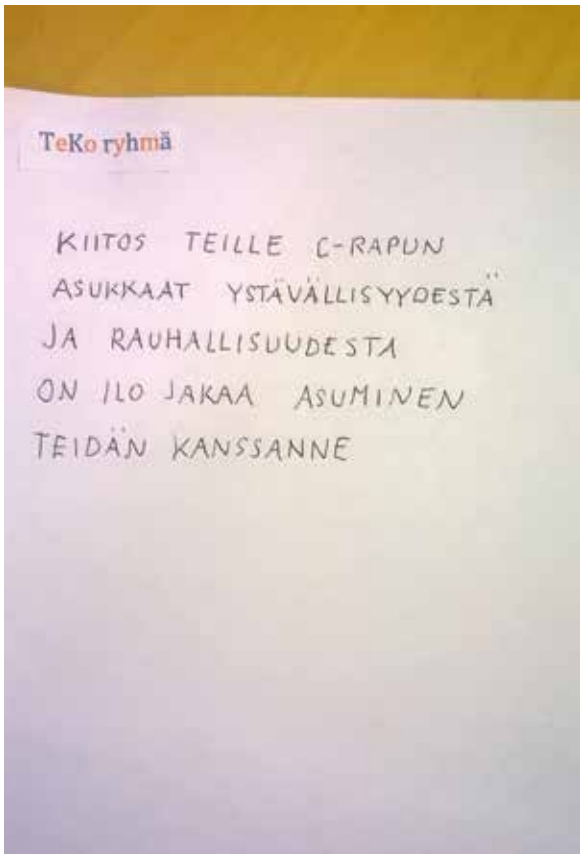 TeKo ryhmä
KIITOS TEILLE C-RAPUN
ASUKKAAT YSTÄVÄLLISYYDESTÄ
JA RAUHALLISUUDESTA
ON ILO JAKAA ASUMINEN
TEIDÄN KANSSANNE